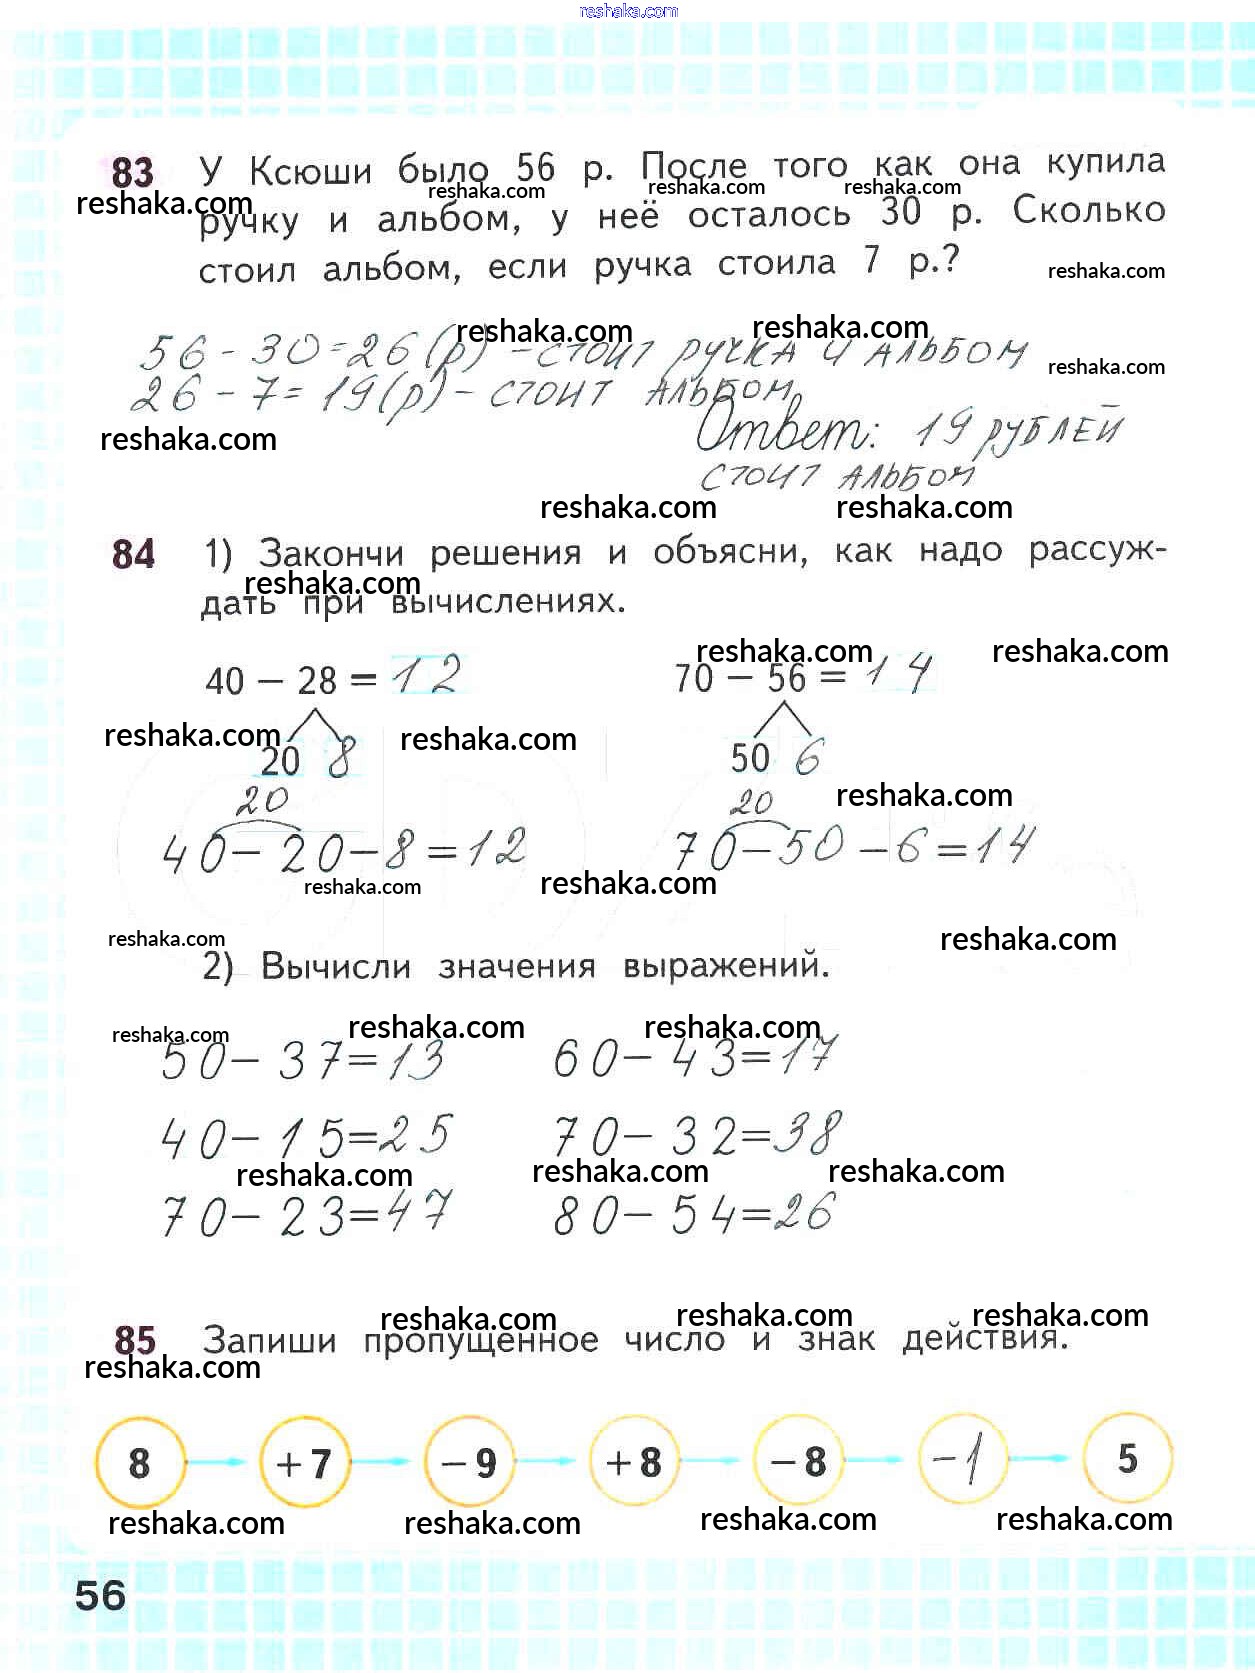 reshaka.com
83 У Ксюши было 56 р. После того как она купила
reshaka.com reshaka.com reshaka.com reshaka.com
ручку и альбом, у неё осталось 30 р. Сколько
стоил альбом, если ручка стоила 7 р.?
reshaka.com
reshaka.com reshaka.com
56 - 30 = 26 (р) - стоит ручка и альбом
reshaka.com
26 - 7 = 19 (р) - стоит альбом
Ответ: 19 рублей
reshaka.com
стоит альбом
reshaka.com reshaka.com
84 1) Закончи решения и объясни, как надо рассуж-
reshaka.com
дать при вычислениях.
reshaka.com reshaka.com
40 − 28 = 12 70 − 56 = 14
reshaka.com reshaka.com
20 8 50 6
reshaka.com
20 20
40 - 20 - 8 = 12 70 - 50 - 6 = 14
reshaka.com reshaka.com
reshaka.com reshaka.com
2) Вычисли значения выражений.
reshaka.com reshaka.com reshaka.com
50 - 37 = 13 60 - 43 = 17
40 - 15 = 25 70 - 32 = 38
reshaka.com reshaka.com reshaka.com
70 - 23 = 47 80 - 54 = 26
reshaka.com reshaka.com reshaka.com
85 Запиши пропущенное число и знак действия.
reshaka.com
8 + 7 − 9 + 8 − 8 - 1 5
reshaka.com reshaka.com reshaka.com reshaka.com
56